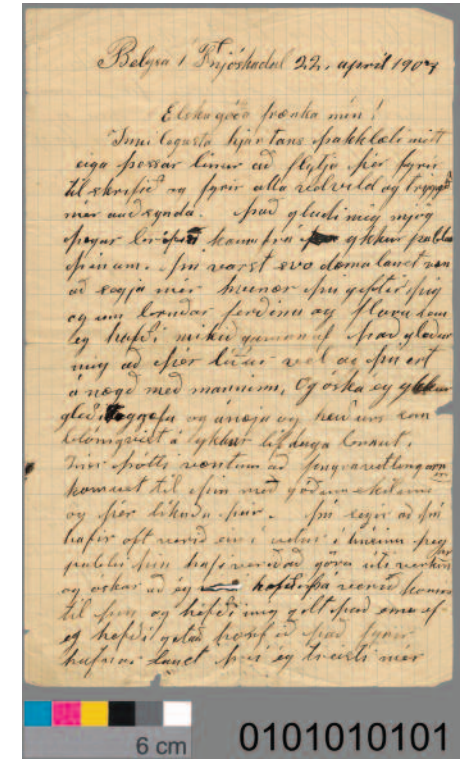 Belgsá í Fnjóskadal 22. apríl 1907
Elsku góða frænka mín!
Innilegasta hjartans þakklæti mitt
eiga þessar línur að flytja þér fyrir
tilskrifið og fyrir alla velvild og tryggð
mér auðsýnda. það gladdi mig mjög
þegar bréfið kom frá ykkur pabba
þínum. þú varst svo dæmalaust væn
að segja mér hvenær þú giftir þig
og um brúðar ferðina og fleira sem
eg hafði mikið gaman af það gleður
mig að þér líður vel og þú ert
ánægð með manninn, Og óska ég ykkur
gleði og ánægja og heiðurs
blómgvist á ykkar lífdaga braut.
þótti vænt um að fengra vetlingarnir
komust til þín með góðum skilum
og þér líkaði þær. þú segir að þú
hafir oft verið ein í húsinu þeg
ar
pabbi þinn hafi verið að göra úti verkin
og óskar að ég hefði þá verið komin
til þín og hefði mig gilt það sama ef
eg hefði getað það fyrir
laust því ég treisti mér
6 cm
0101010101